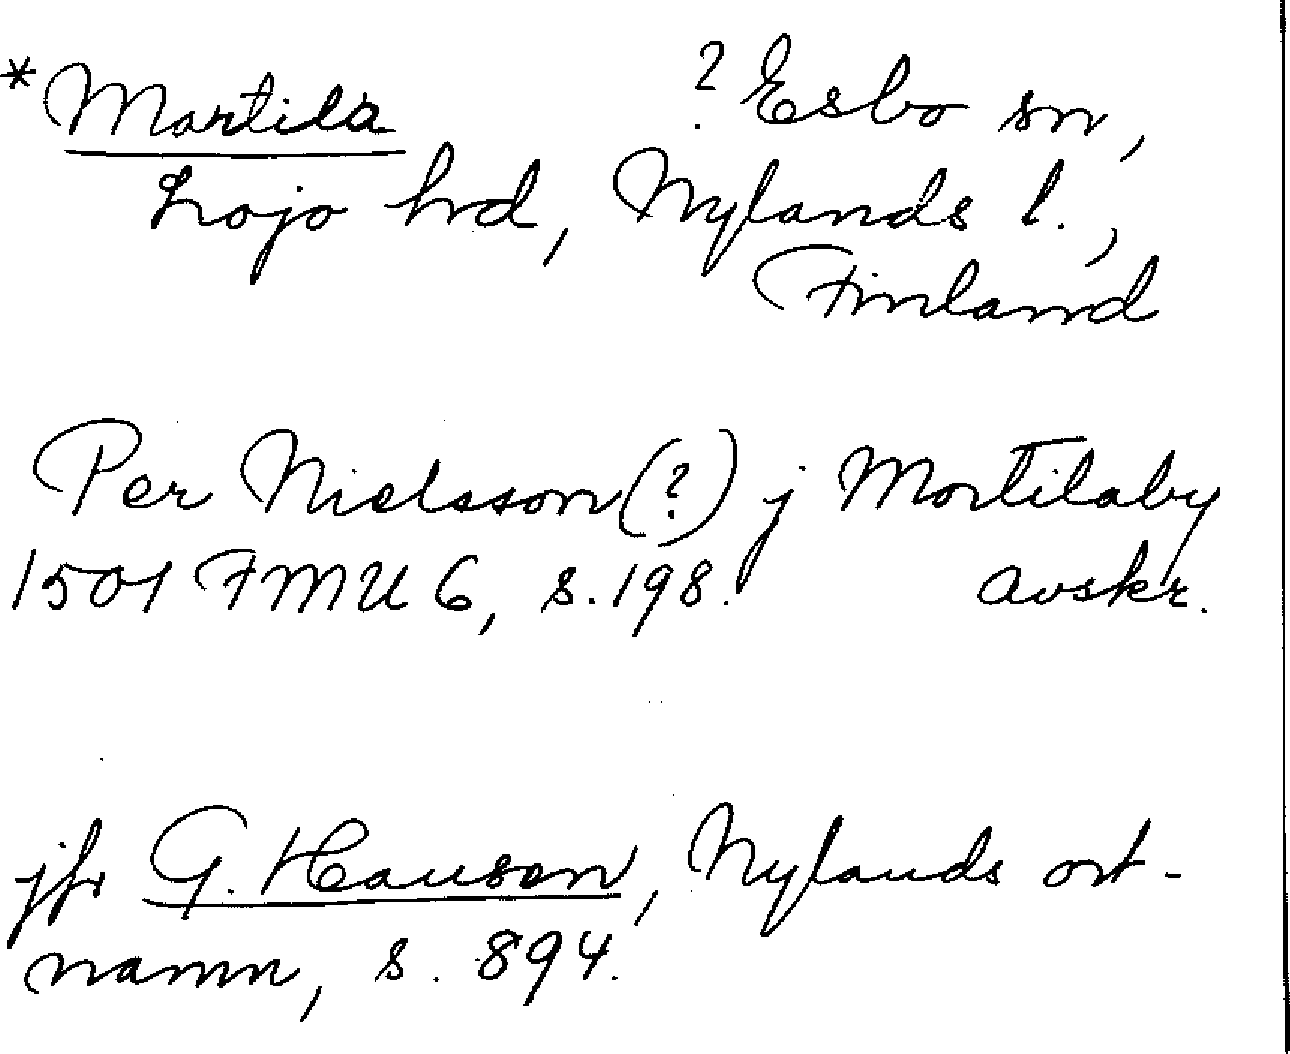 *Martila ? Esbo sn,
Lojo hrd, Nylands l.,
Finland
Per Nielsson (?) j Mortilaby
1501 FMU 6, s. 198. avskr.
jfr G. Hausen, Nylands ort-
namn, s. 894.